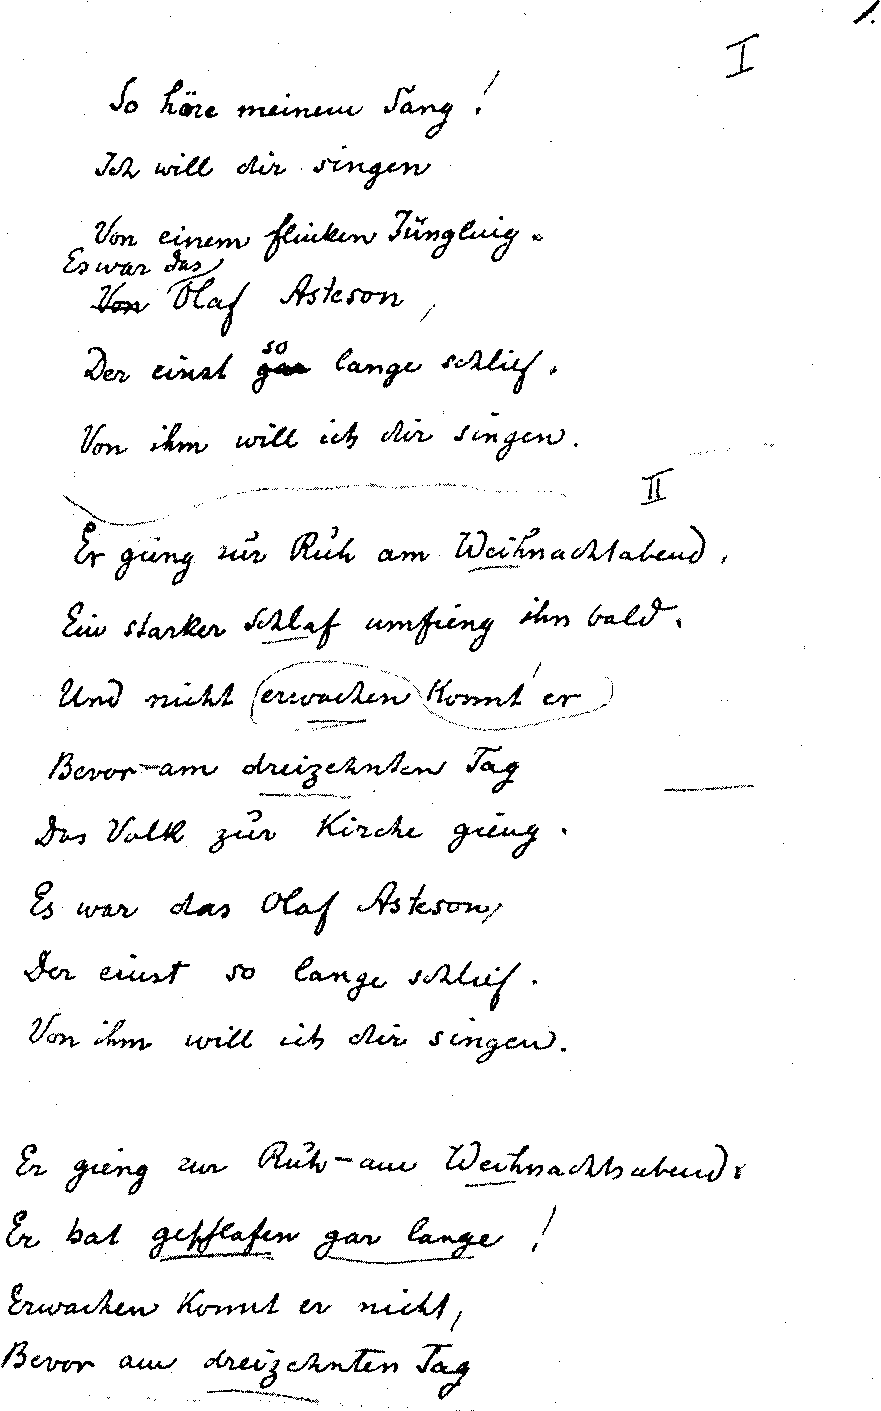 1.
I
So höre meinem Sang!
Ich will dir singen
Von einem flinken Jüngling.
Es war das
Von Olaf Asteson,
so
Der einst gar lange schlief.
Von ihm will ich dir singen.
II
Er gieng zur Ruh am Weihnachtabend.
Ein starker Schlaf umfieng ihn bald.
Und nicht erwachen konnt' er
Bevor – am dreizehnten Tag
Das Volk zur Kirche gieng.
Es war das Olaf Asteson,
Der einst so lange schlief.
Von ihm will ich dir singen.
Er gieng zur Ruh – am Weihnachtsabend.
Er hat geschlafen gar lange!
Erwachen konnt er nicht,
Bevor am dreizehnten Tag